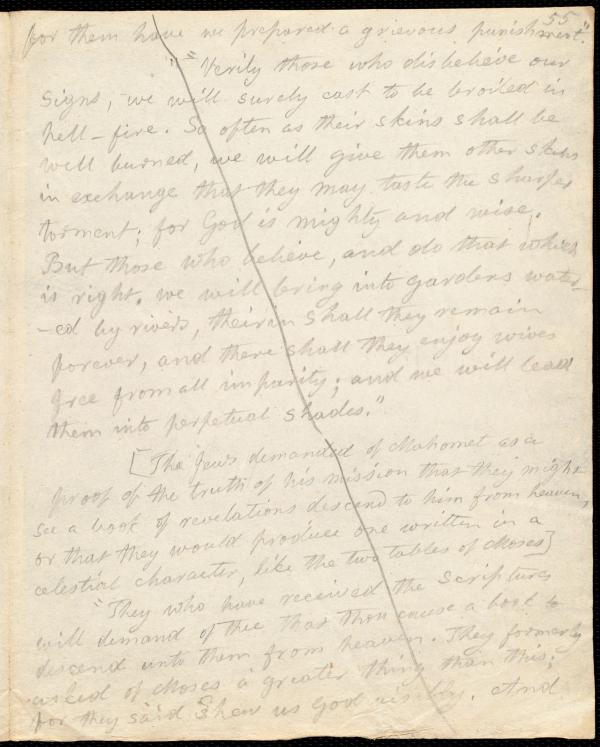 55
for them have we prepared a grievous punishment."
" "Verily those who disbelieve our
signs, we will surely cast to be broiled in
hell-fire. So often as their skins shall be
well burned, we will give them other skins
in exchange that they may taste the sharper
torment; for God is mighty and wise.
But those who believe, and do that which
is right, we will bring into gardens water-
-ed by rivers, therein shall they remain
forever, and there shall they enjoy wives
free from all impurity; and we will lead
them into perpetual shades."
[The Jews demanded of Mahomet as a
proof of the truth of his mission that they might
see a book of revelations descend to him from heaven,
or that they would produce one written in a
celestial character, like the two tables of Moses]
"They who have received the Scriptures
will demand of thee that thou cause a book to
descend unto them from heaven. They formerly
asked of Moses a greater thing than this;
for they said Shew us God visibly. And